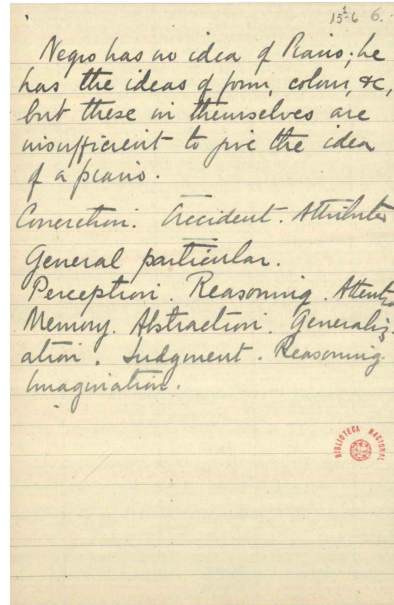 15¹-6 6.
Negro has no idea of Piano; he
has the ideas of form, colour, &c,
but these in themselves are
insufficient to give the idea
of a piano.
Concretion. Accident. Attributes
General particular.
Perception. Reasoning. Attention
Memory. Abstraction. Generaliz-
ation. Judgment. Reasoning.
Imagination.
BIBLIOTECA NACIONAL